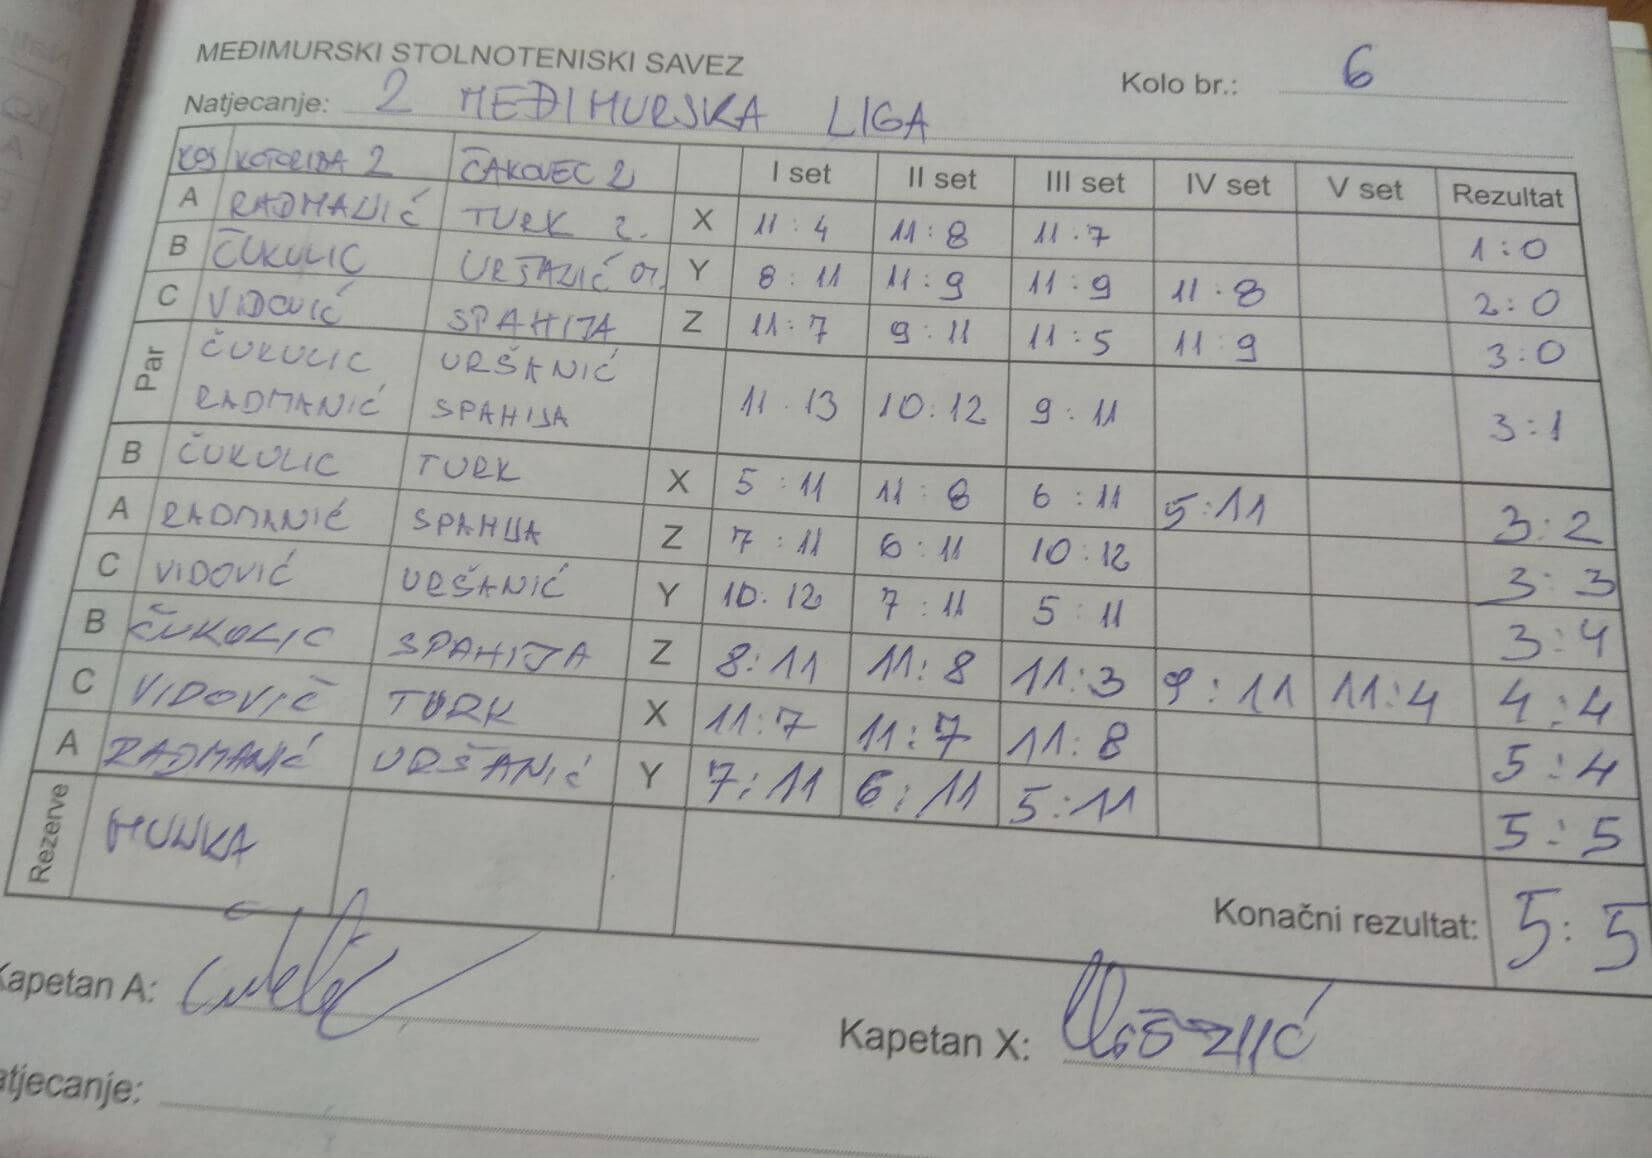 MEĐIMURSKI STOLNOTENISKI SAVEZ
Kolo br.: 6
Natjecanje: 2 MEĐIMURSKA LIGA
KOTORIBA 2 ČAKOVEC 2 I set II set III set IV set V set Rezultat
A RADMANIĆ TURK X 11:4 11:8 11:7 1:0
B ČUKULIC Y 8:11 11:9 11:9 11:8 2:0
C VIDOVIĆ SPAHIJA Z 11:7 9:11 11:5 11:9 3:0
Par
ČUKULIC URŠANIĆ
RADMANIĆ SPAHIJA 11:13 10:12 9:11 3:1
B ČUKULIC TURK X 5:11 11:8 6:11 5:11 3:2
A RADMANIĆ SPAHIJA Z 7:11 6:11 10:12 3:3
C VIDOVIĆ URŠANIĆ Y 10:12 7:11 5:11 3:4
B ČUKOLIC SPAHIJA Z 8:11 11:8 11:3 9:11 11:4 4:4
C VIDOVIČ TURK X 11:7 11:7 11:8 5:4
A RADMANIĆ URŠANIĆ Y 7:11 6:11 5:11 5:5
Rezerve
Konačni rezultat: 5:5
Kapetan A:
Kapetan X:
atjecanje: